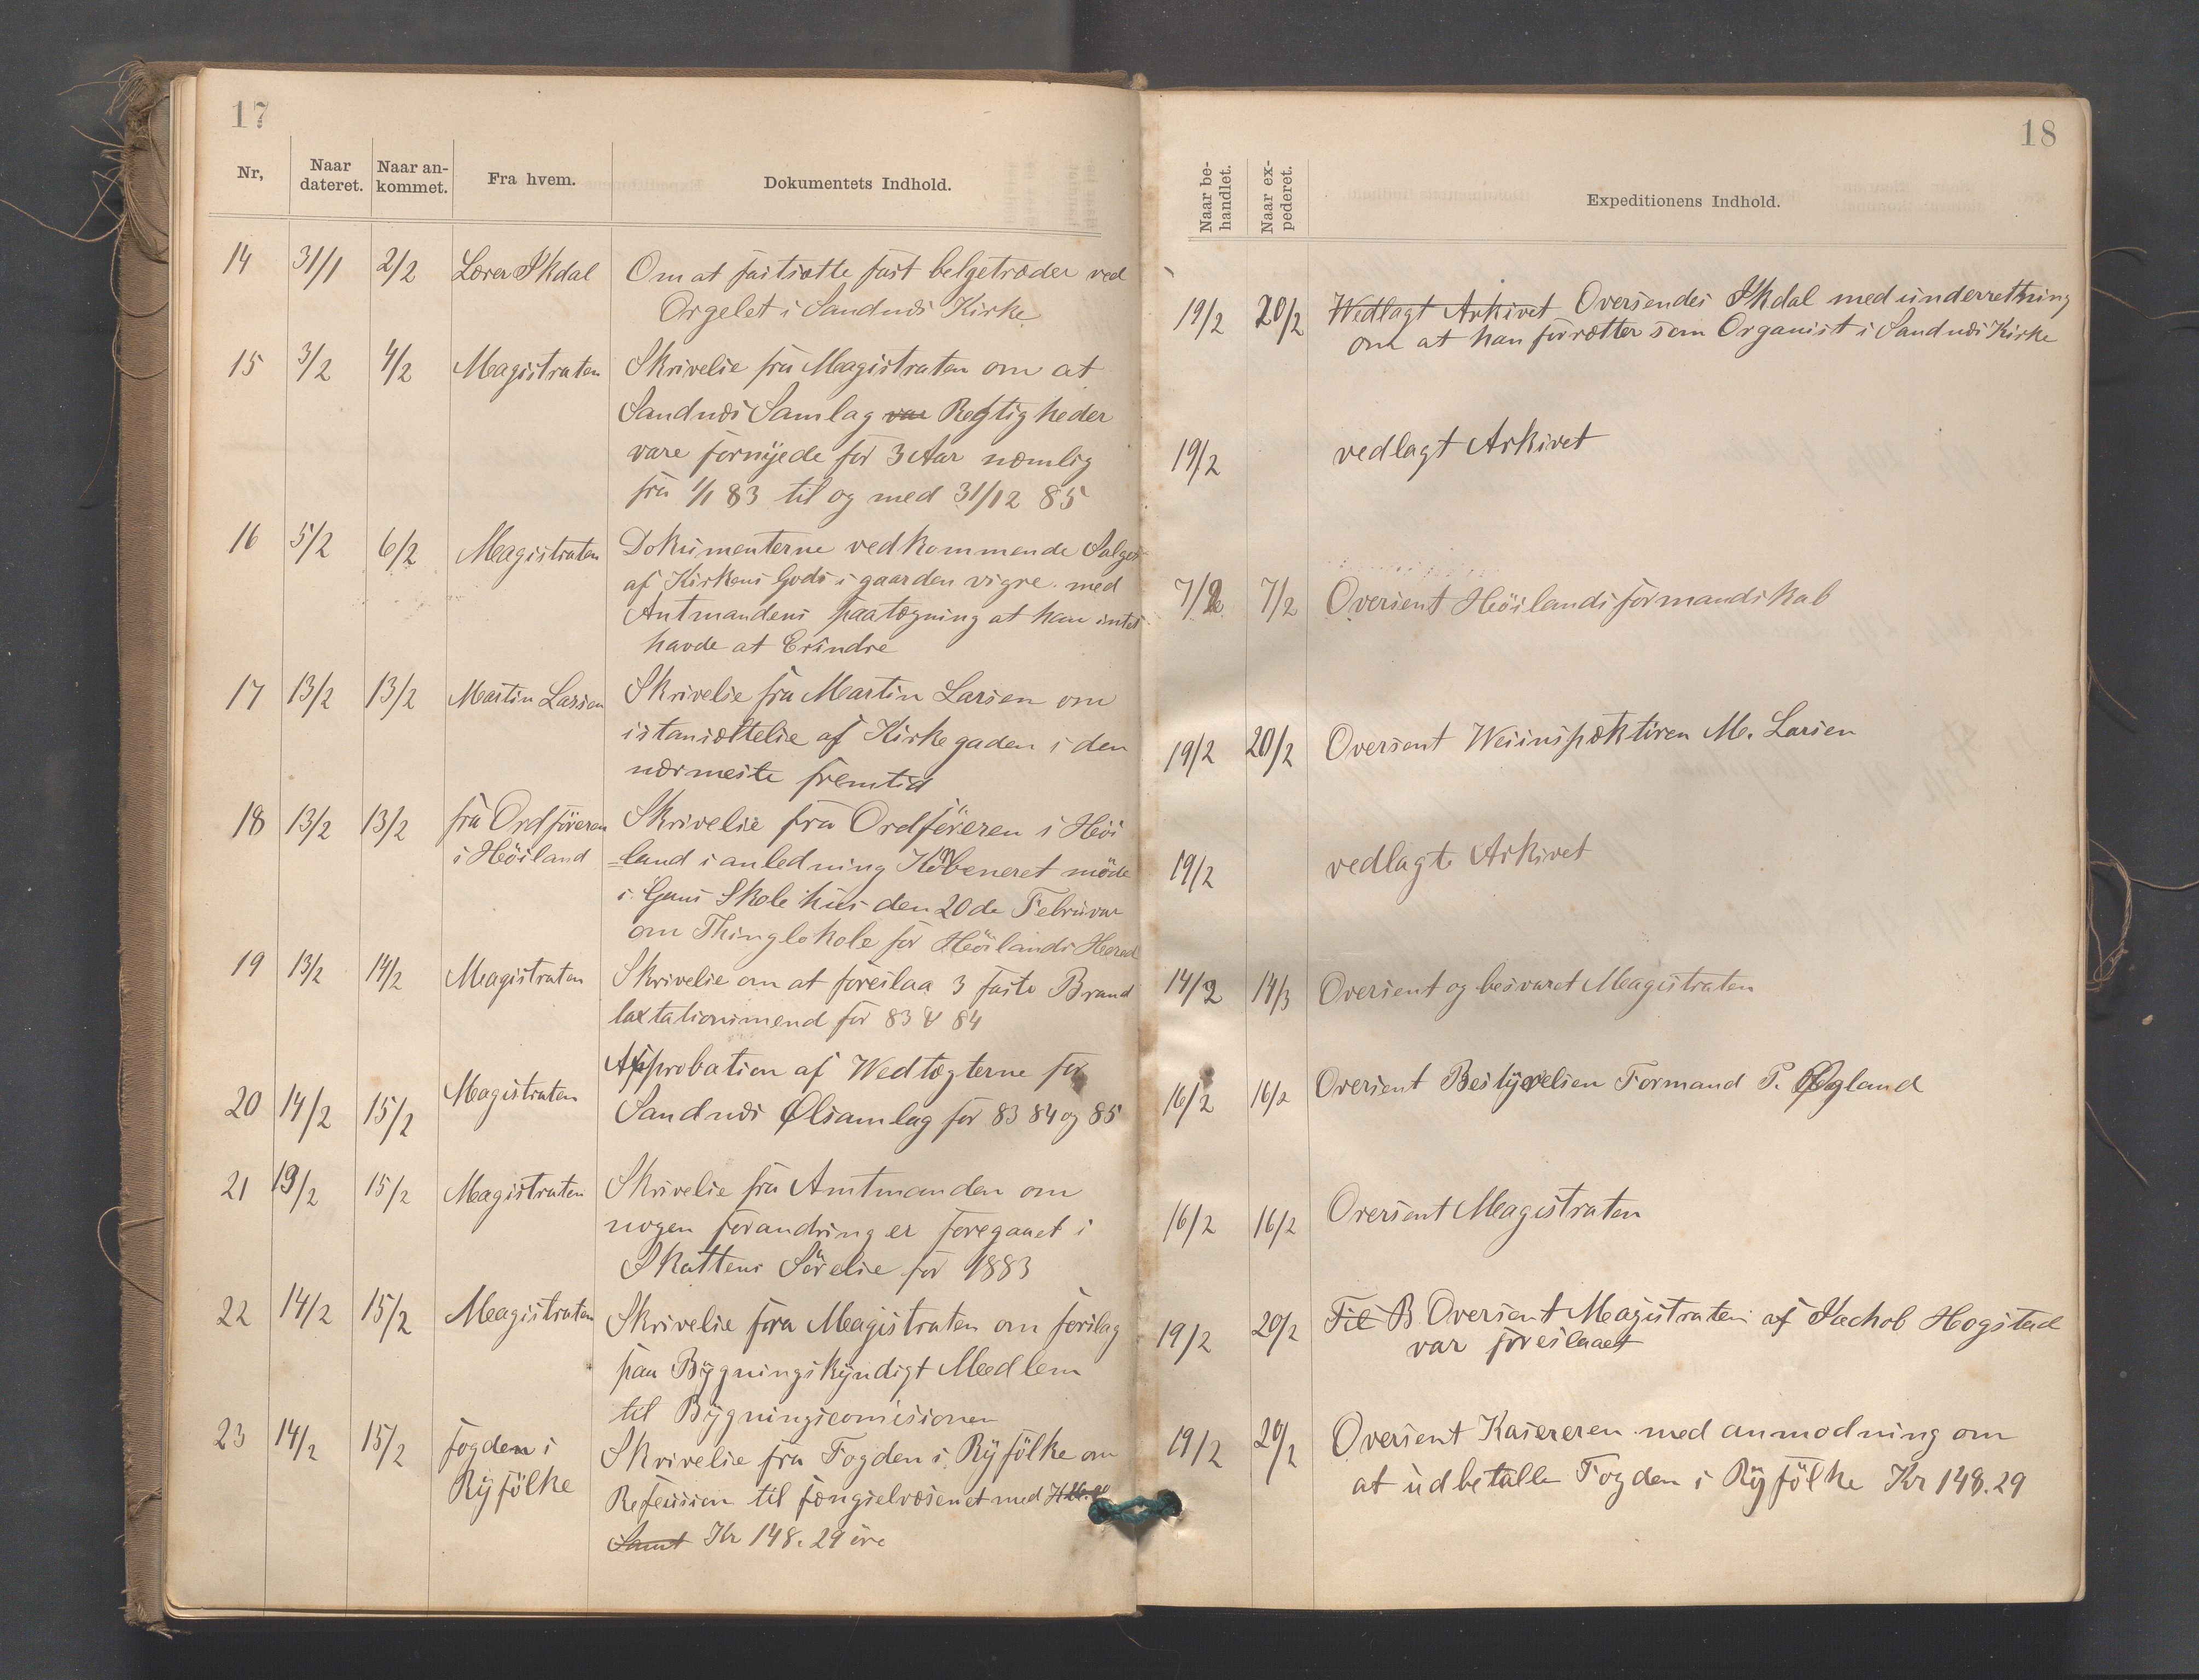 17
Nr,
Naar dateret.
Naar an-kommet.
Fra hvem.
Dokumentets Indhold.
14 31/1 2/2 Lærer Skdal Om at fastsætte fast belgetræder ved
Orgelet i Sandnæs Kirke
15 3/2 4/2 Magistraten Skrivelse fra Magistraten om at
Sandnæs Samlag var Regtigheder
vare fornyede for 3 Aar næmlig
fra 1/1 83 til og med 31/12 85
16 5/2 6/2 Magistraten Dokumenterne vedkommende Salget
af Kirkens Gods i gaarden vigre med
Amtmandens paategning at han intet
havde at Erindre
17 13/2 13/2 Martin Larsen Skrivelse fra Martin Larsen om
istansættelse af Kirkegaden i den
nærmeste fremtid
18 13/2 13/2 fra Ordföreren Skrivelse fra Ordföreren i Höi
i Höiland =land i anledning Kombeneret möde
i Gans Skolehus den 20de Februar
om Thinglokole for Höilands Hered
19 13/2 14/2 Magistraten Skrivelse om at foreslaa 3 faste Brand
taxtationsmend for 83 & 84
20 14/2 15/2 Magistraten Approbation af Wedtægterne for
Sandnæs Ølsamlag for 83 84 og 85
21 19/2 15/2 Magistraten Skrivelse fra Amtmanden om
nogen forandring er foregaaet i
Skattens Störelse for 1883
22 14/2 15/2 Magistraten Skrivelse fra Magistraten om forslag
paa Bygningskyndigt Medlem
til Bygningscomisionen
23 14/2 15/2 fogden i Skrivelse fra Fogden i Ryfölke om
Ryfölke Refeusion til fængselvæsenet med
Samt Kr 148.29 öre
18
Naar be-handlet.
Naar ex-pederet.
Expeditionens Indhold.
19/2 20/2 Wedlagt Arkivet Oversendes Skdal med underretning
om at han forretter som Organist i Sandnæs Kirke
19/2 vedlagt Arkivet
7/2 7/2 Oversent Höilands formandskab
19/2 20/2 Oversent Weiinspæktören M. Larsen
19/2 vedlagt Arkivet
14/2 14/3 Oversent og besvaret Magistraten
16/2 16/2 Oversent Bestyrelsen Formand P. Øgland
16/2 16/2 Oversent Magistraten
19/2 20/2 Til B Oversent Magistraten af Jachob Hogstad
var foreslaaet
19/2 20/2 Oversent Kasereren med anmodning om
at udbetalle Fogden i Ryfölke Kr 148.29